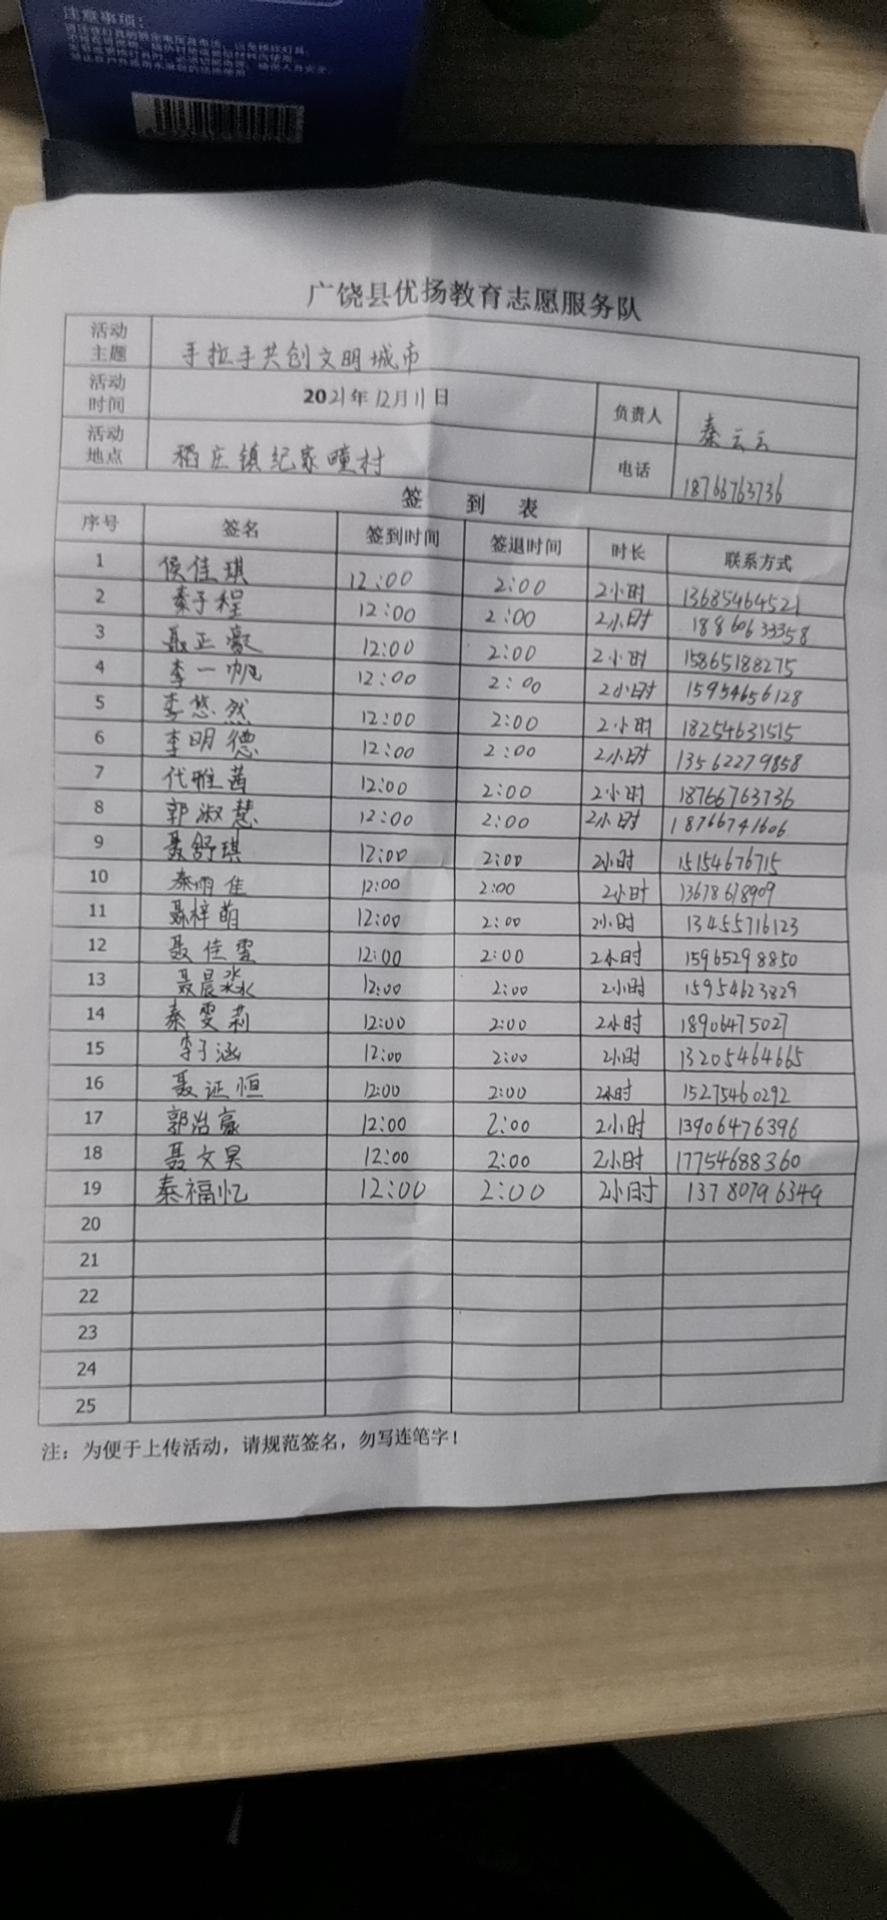 注意事项:
广饶县优扬教育志愿服务队
活动主题 手拉手共创文明城市
活动时间 2021年12月11日 负责人 秦云云
活动地点 稻庄镇纪家疃村 电话 18766763736
签 到 表
序号 签名 签到时间 签退时间 时长 联系方式
1 侯佳琪 12:00 2:00 2小时 13685464521
2 秦子程 12:00 2:00 2小时 18860633358
3 聂正豪 12:00 2:00 2小时 15865188275
4 李一帆 12:00 2:00 2小时 15954656128
5 李悠然 12:00 2:00 2小时 18254631515
6 李明德 12:00 2:00 2小时 13562279858
7 代雅茜 12:00 2:00 2小时 18766763736
8 郭淑慧 12:00 2:00 2小时 18766741606
9 聂舒琪 12:00 2:00 2小时 15154676715
10 秦雨佳 12:00 2:00 2小时 13678618909
11 聂梓萌 12:00 2:00 2小时 13455716123
12 聂佳雪 12:00 2:00 2小时 15965298850
13 聂晨淼 12:00 2:00 2小时 15954623829
14 秦雯莉 12:00 2:00 2小时 18906475027
15 李子涵 12:00 2:00 2小时 13205464665
16 聂证恒 12:00 2:00 2小时 15275460292
17 郭治豪 12:00 2:00 2小时 13906476396
18 聂文昊 12:00 2:00 2小时 17754688360
19 秦福忆 12:00 2:00 2小时 13780796349
20
21
22
23
24
25
注：为便于上传活动，请规范签名，勿写连笔字！